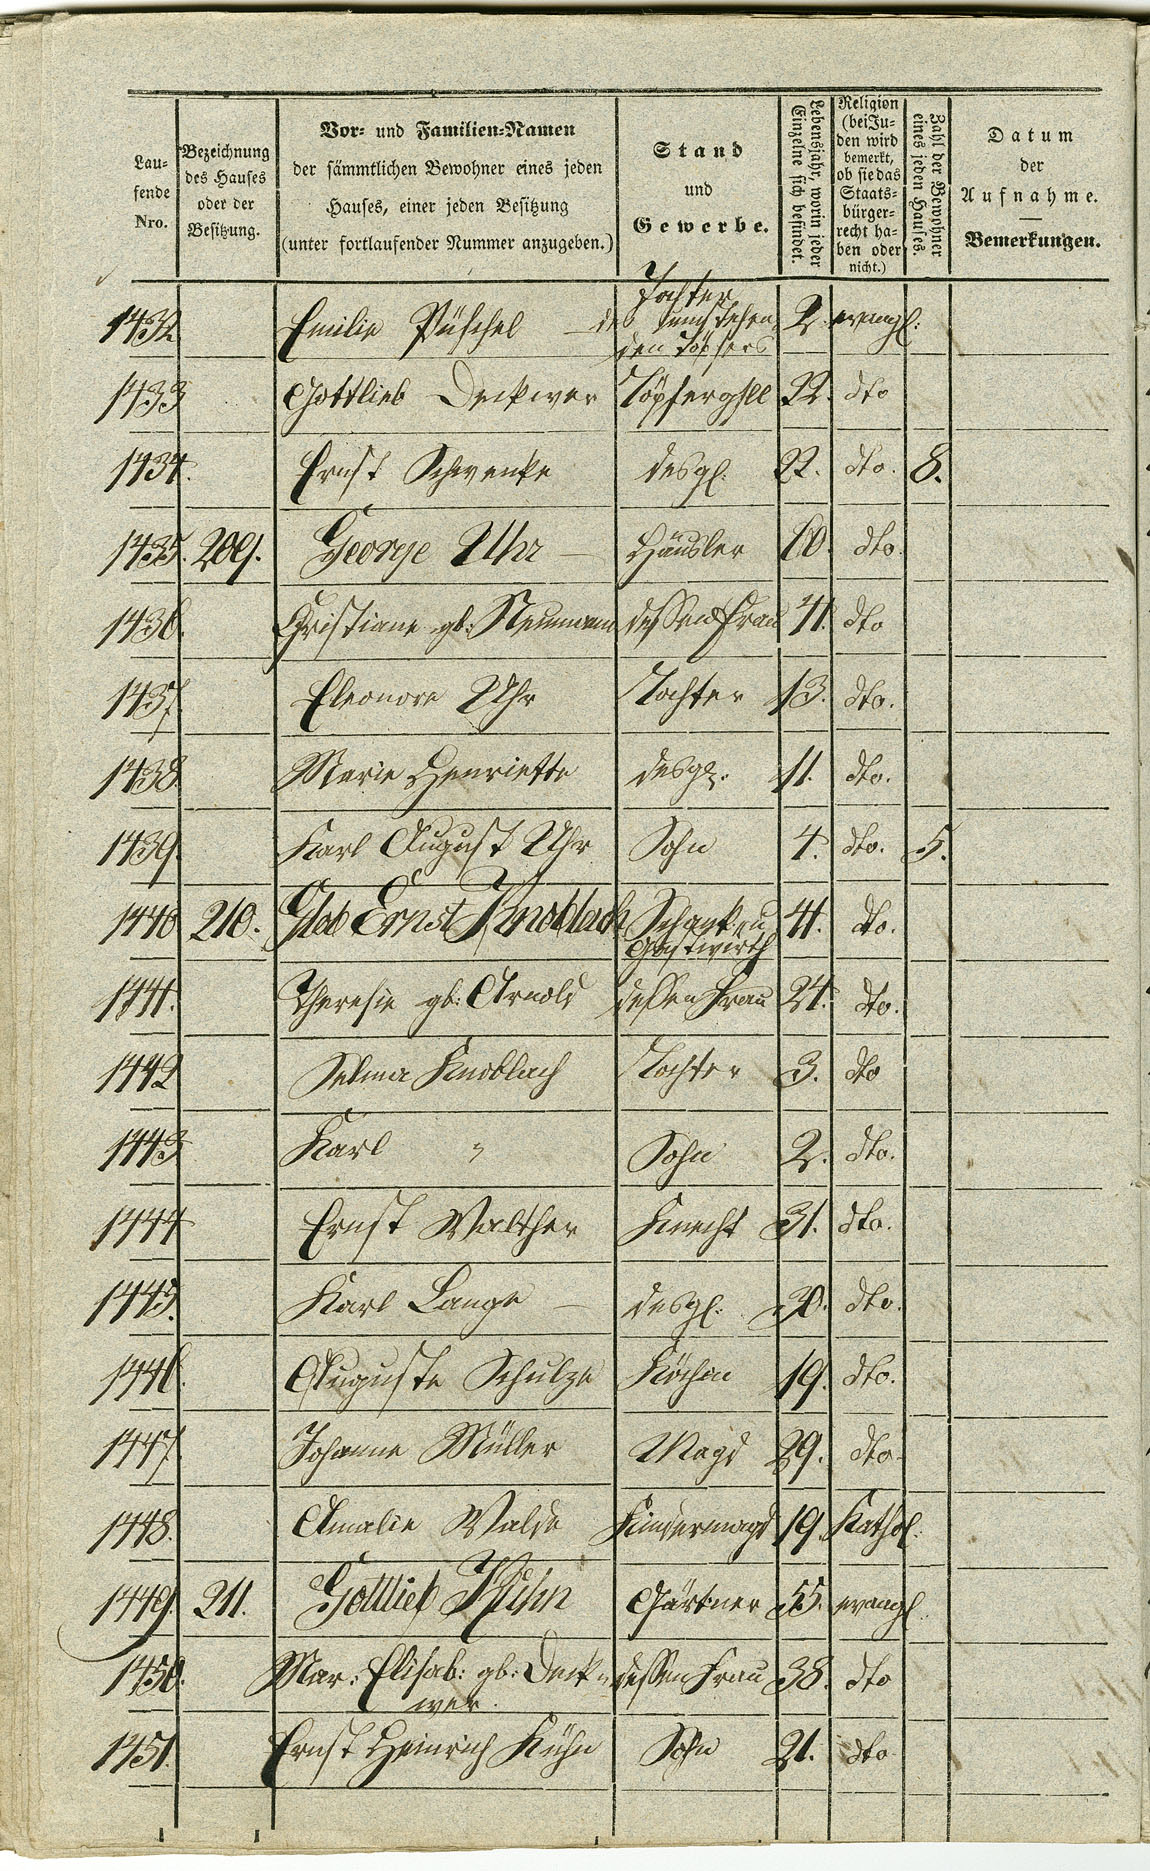 Laufende Nro. | Bezeichnung des Hauses oder der Besitzung. | Vor- und Familien-Namen der sämmtlichen Bewohner eines jeden Hauses, einer jeden Besitzung (unter fortlaufender Nummer anzugeben.) | Stand und Gewerbe. | Lebensjahr, worin jeder Einzelne sich befindet. | Religion (bei Juden wird bemerkt, ob sie das Staatsbürgerrecht haben oder nicht.) | Zahl der Bewohner eines jeden Hauses. | Datum der Aufnahme. — Bemerkungen.
1432 Emilie Püschel — Tochter des umstehenden Töpfers 2. evangl:
1433 Gottlieb Deckwer Töpfergsll 22. dto
1434. Ernst Schwenke desgl. 22. dto. 8.
1435. 209. George Uhr — Häusler 60. dto.
1436. Christiane gb: Neumann dessen Frau 41. dto
1437. Eleonore Uhr Tochter 13. dto.
1438. Marie Henriette desgl. 11. dto.
1439. Karl August Uhr Sohn 4. dto. 5.
1440 210. Glob Ernst Knoblach Schank u Gastwirth 41. dto.
1441. Theresie gb: Arnold dessen Frau 24. dto.
1442 Selma Knoblach Tochter 3. dto
1443 Karl " Sohn 2. dto.
1444 Ernst Walther Knecht 31. dto.
1445. Karl Lange — desgl. 30. dto.
1446. Auguste Schulze Köchin 19. dto.
1447. Johanne Müller Magd 29. dto.
1448. Amalie Walde Kindermagd 19 Kathol.
1449. 211. Gottlieb Kühn Gärtner 55. evangl.
1450. Mar: Elisab: gb: Deckwer. dessen Frau 38. dto
1451. Ernst Heinrich Kühn Sohn 21. dto